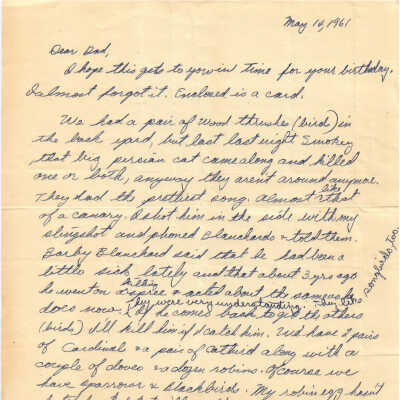 May 10, 1961
Dear Dad,
I hope this gets to you in time for your birthday.
I almost forgot it. Enclosed is a card.
We had a pair of Wood thrushes (bird) in
the back yard, but last last night Smokey
that big persian cat came along and killed
one or both, anyway they aren't around anymore.
They had the prettiest song. Almost like that
of a canary. I shot him in the side with my
slingshot and phoned Blanchards & told them.
Barby Blanchard said that he had been a
little sick lately and that about 3 yrs ago
he went on a killing spree & acted about the same as he
does now. They were very understanding. They like songbirds, too.
If he comes back to get the others
(birds) I'll kill him if I catch him. We have 2 pairs
of Cardinal & a pair of catbird along with a
couple of doves & a dozen robins. Of course we
have sparrows & blackbird. My robin egg hasn't